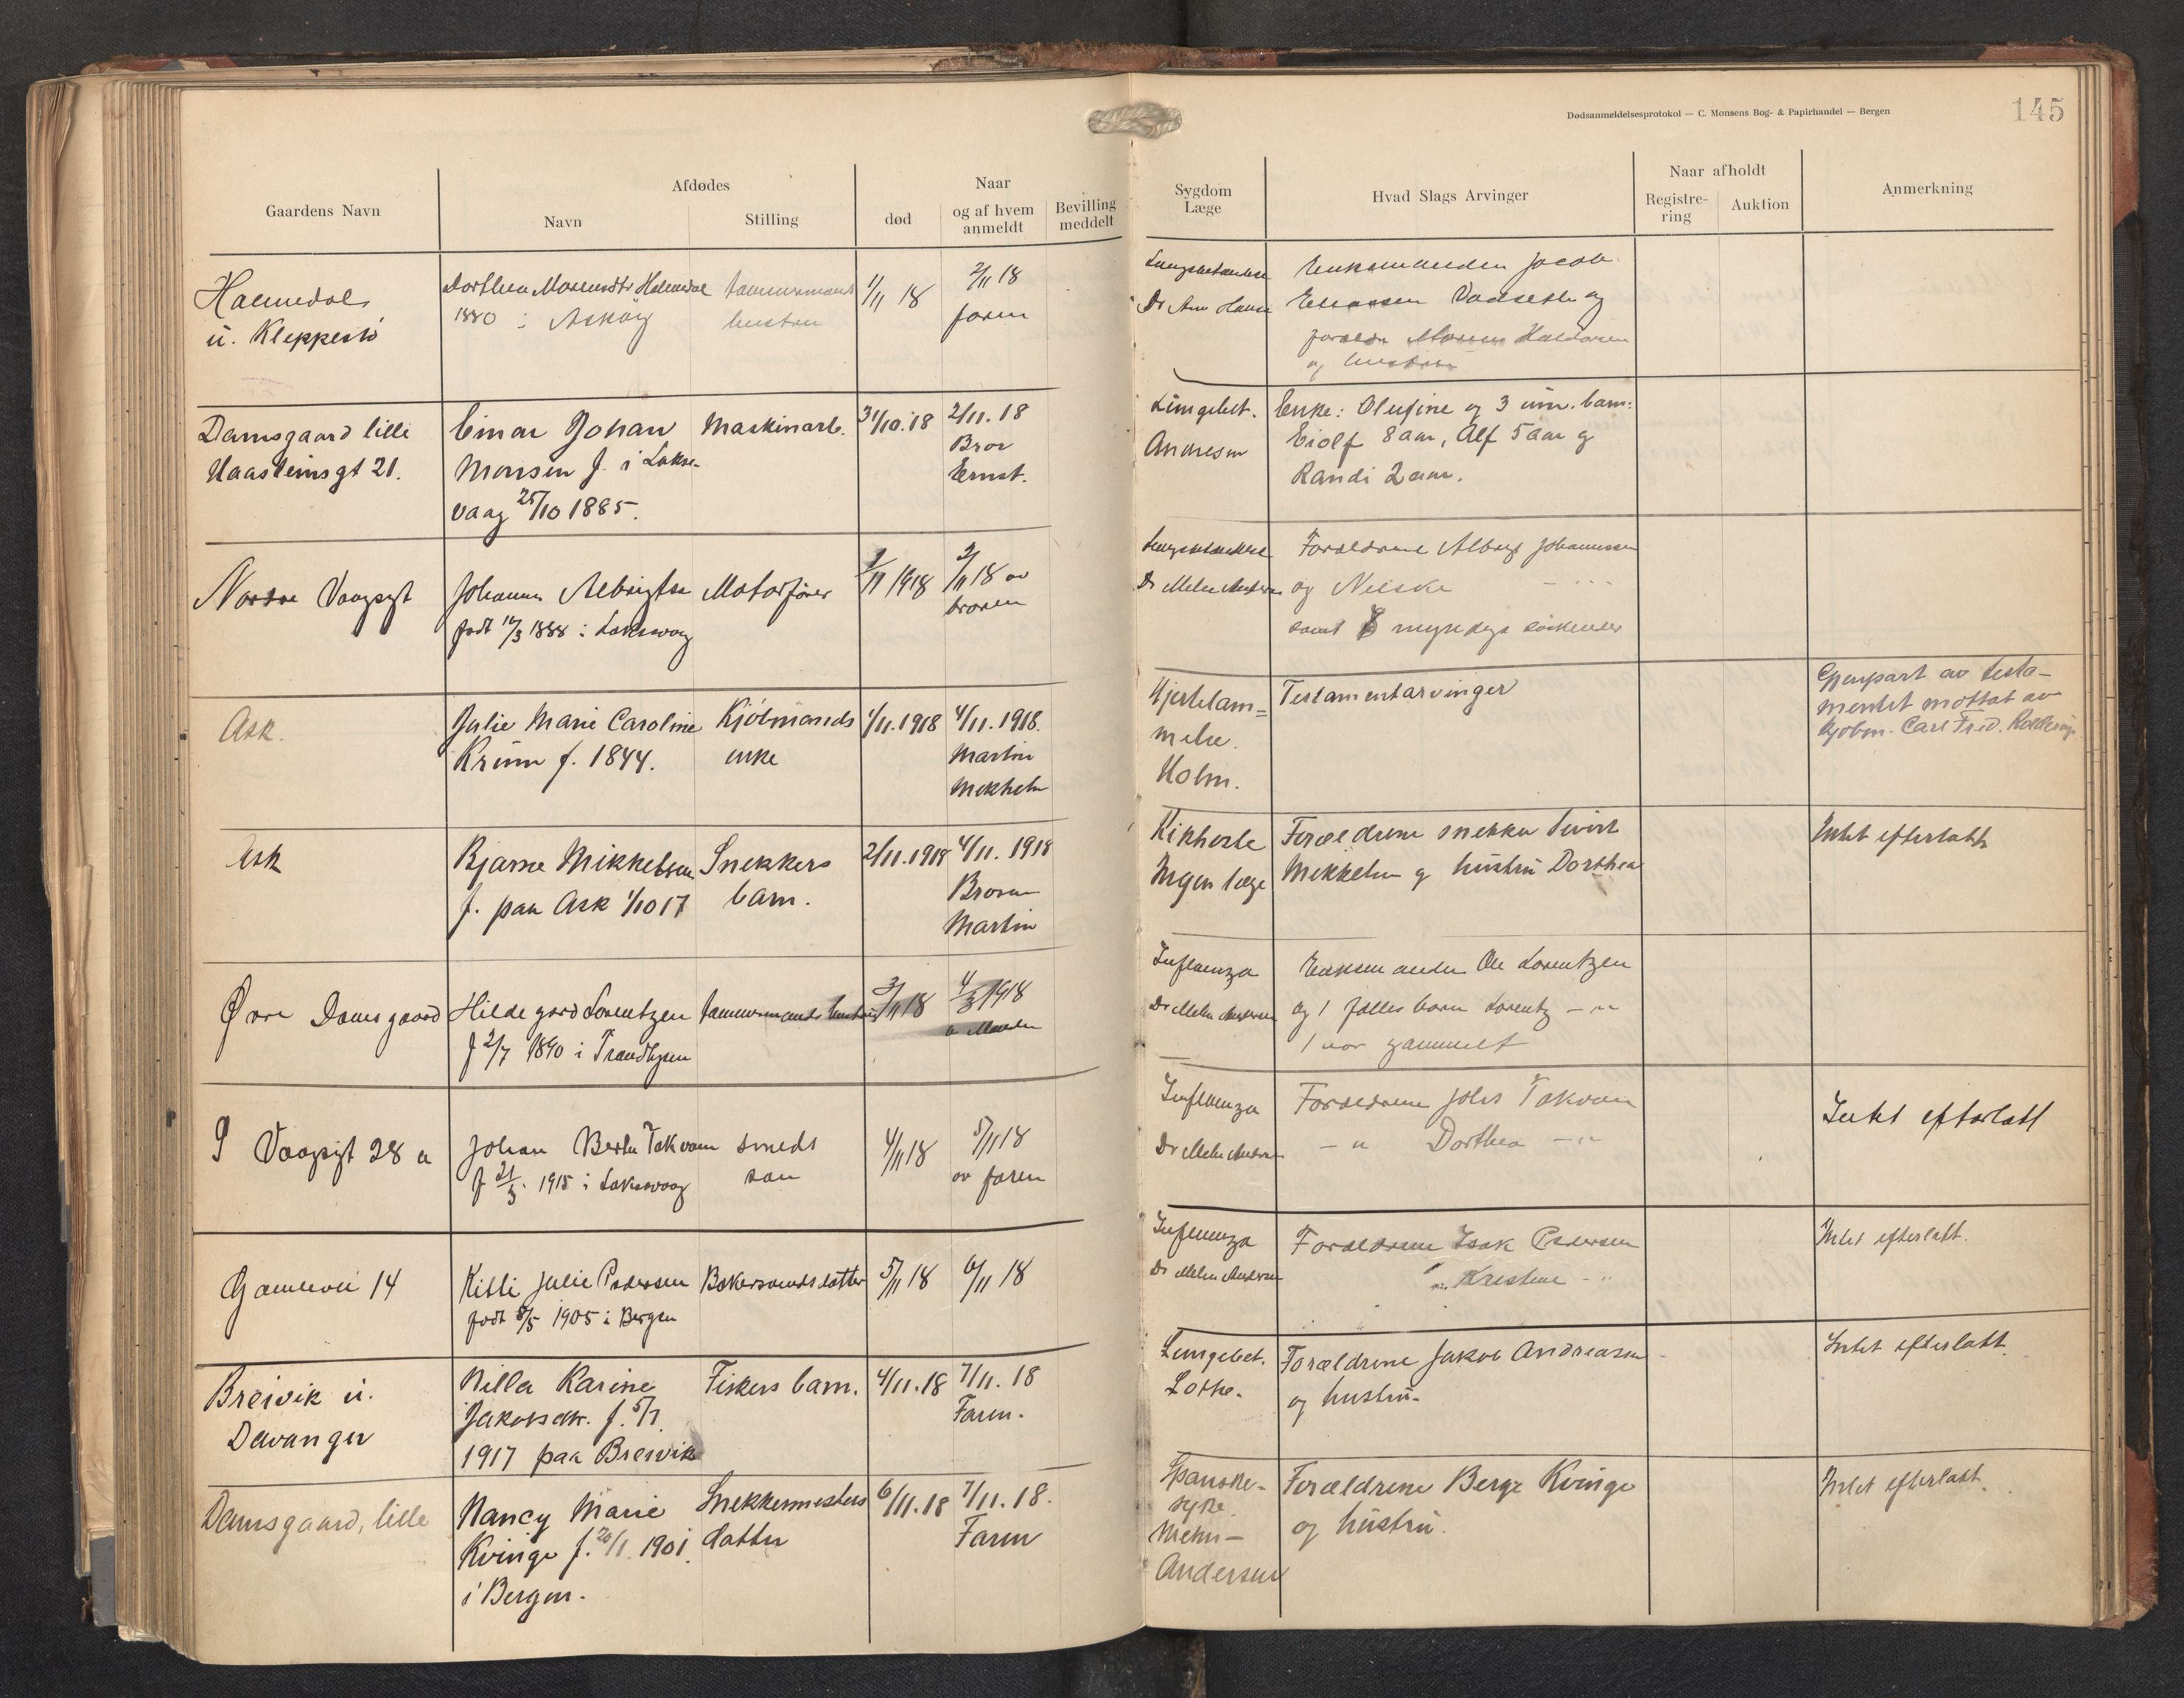 Dødsanmeldelsesprotokol — C. Monsens Bog- & Papirhandel — Bergen
145
Gaardens Navn
Afdødes
Navn
Stilling
død
Naar
og af hvem
anmeldt
Bevilling
meddelt
Sygdom
Læge
Hvad Slags Arvinger
Naar afholdt
Registre-
ring
Auktion
Anmerkning
u. Kleppestø
Dorthea
1880 i Askøy
hustru
1/11 18
2/11 18
faren
Enkemanden Jacob
og
og hustru
Damsgaard lille
Haasteinsgt 21.
Einar Johan
Monsen f. i Lakse-
vaag 25/10 1885.
Maskinarb.
31/10.18
2/11.18
Bror
Ernst.
Lungebet.
Andresen
Enke: Olufine og 3 um. barn:
Eiolf 8 aar, Alf 5 aar og
Randi 2 aar.
Nordre Vaagsgt
Johannes Albrigtsen
født 1888 i Laksevaag
Motorfører
1/11 1918
2/11 18 av
broren
Lungebetændelse
Dr Mehn Andersen
Forældrene Albrigt Johannessen
og Nilske — " —
samt myndige søskender
Ask.
Julie Marie Caroline
f. 1844.
Kjøbmands
enke
1/11.1918
4/11.1918.
Martin
Mikkelsen
Hjertelam=
melse.
Holm.
Testamentarvinger
Gjenpart av testa-
mentet mottat av
kjøbm. Carl Fred.
Ask
Bjarne Mikkelsen
f. paa Ask 1/10 17
Snekkers
barn.
2/11.1918
4/11.1918
Broren
Martin
Kikhoste
Ingen læge
Forældrene snekker Sivert
Mikkelsen og hustru Dorthea
Intet efterlatt
Øvre Damsgaard
Hildegard Lorentzen
f 2/7 1890 i Trondhjem
tømmermands hustru
3/11 18
1918
av Manden
Influenza
Dr Mehn Andersen
Enkemanden Ole Lorentzen
og 1 fælles barn Lorentz — " —
1 aar gammelt
S Vaagsgt 28 a
Johan Takvam
f 21/3. 1915 i Laksevaag
smeds
søn
4/11 18
5/11 18
av faren
Influenza
Dr Mehn Andersen
Forældrene Johs Takvam
— " — Dorthea — " —
Intet efterlatt
Gamlevei 14
Kitti Julie Pedersen
født 8/5 1905 i Bergen
Bøkersvends datter
5/11 18
6/11 18
Influenza
Dr Mehn Andersen
Forældrene Isak Pedersen
" Kristine — "
Intet efterlatt.
Breivik u.
Davanger
Nilla Karine
Jakobsdtr. f. 5/1
1917 paa Breivik
Fiskers barn.
4/11.18
7/11.18
Faren.
Lungebet.
Lothe.
Forældrene Jakob Andreassen
og hustru.
Intet efterlatt.
Damsgaard, lille
Nancy Marie
Kvinge f. 20/1. 1901.
i Bergen.
Snekkermesters
datter
6/11.18
7/11.18.
Faren
Spanske-
syke.
Mehn—
Andersen
Forældrene Berge Kvinge
og hustru.
Intet efterlatt.